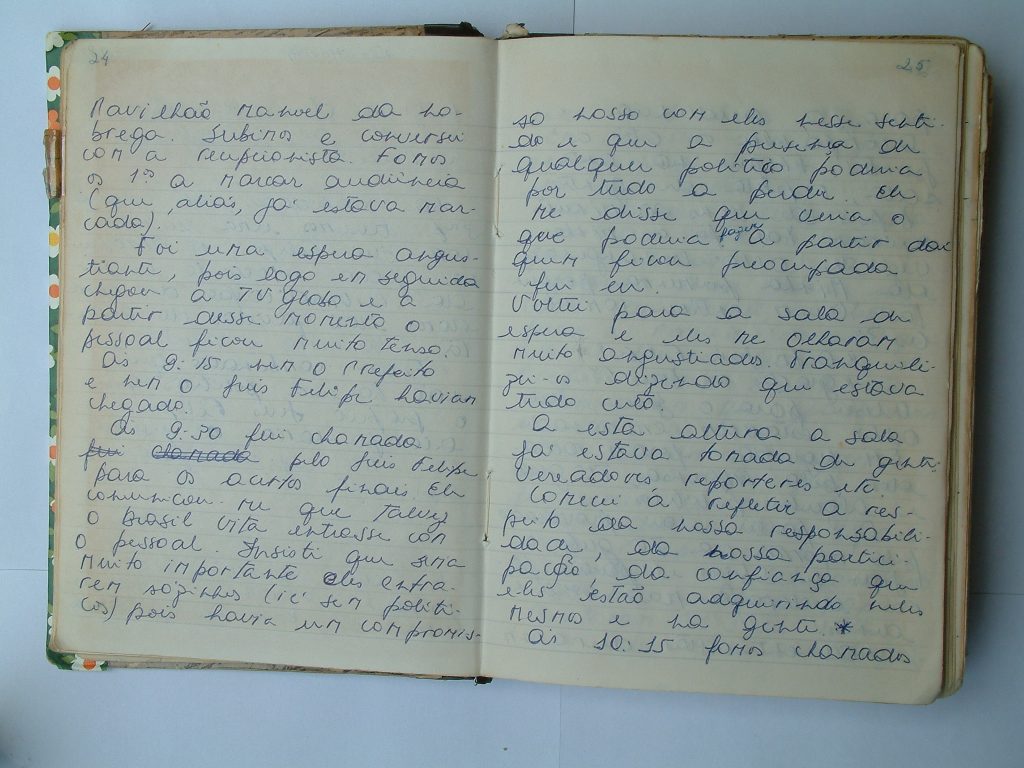 24
Pavilhão Manoel da Nó-
brega. Subimos e conversei
com a recepcionista. Fomos
os 1ºs a marcar audiência
(que, aliás, já estava mar-
cada).
Foi uma espera angus-
tiante, pois logo em seguida
chegou a TV Globo e a
partir desse momento o
pessoal ficou muito tenso.
Às 9:15 nem o Prefeito
e nem o Luis Felipe haviam
chegado.
Às 9:30 fui chamada
fui chamada pelo Luis Felipe
para os acertos finais. Ele
comunicou-me que talvez
o Brasil Vita entrasse com
o pessoal. Insisti que seria
muito importante eles entra-
rem sozinhos (i é sem políti-
cos) pois havia um compromis-
25
so nosso com eles nesse senti-
do e que a presença de
qualquer político poderia
por tudo a perder. Ele
me disse que veria o
que poderia fazer. A partir daí
quem ficou preocupada
fui eu.
Voltei para a sala de
espera e eles me olharam
muito angustiados. Tranquili-
zei-os dizendo que estava
tudo certo.
A esta altura a sala
já estava tomada de gente:
vereadores reporteres etc.
Comecei a refletir a res-
peito da nossa responsabili-
dade, da nossa partici-
pação, da confiança que
eles estão adquirindo neles
mesmos e na gente. *
Às 10:15 fomos chamados